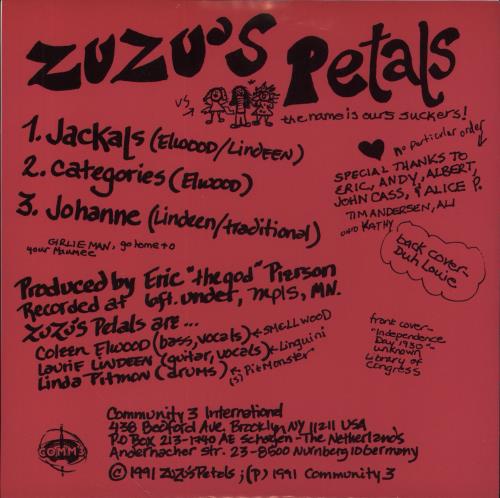 ZUZU'S Petals
vs
the name is ours suckers!
1. Jackals (Elwood/Lindeen)
2. Categories (Elwood)
3. Johanne (Lindeen/traditional)
GIRLIE MAN, go home to
your Maumee
no particular order
SPECIAL THANKS TO
ERIC, ANDY, ALBERT,
JOHN CASS, & ALICE P.
TIM ANDERSEN, ALI
KATHY
back cover-
Duh Louie
Produced by Eric "the god" Pierson
Recorded at 6ft. under, mpls, MN.
ZUZU'S Petals are ...
Coleen Elwood (bass, vocals) SMELLWOOD
Laurie LINDEEN (guitar, vocals) Linguini
Linda Pitmon (drums) (s) PitMonster
front cover-
"Independence
Day 1930"-
unknown
Library of
Congress
Community 3 International
438 Bedford Ave. Brooklyn, NY 11211 USA
P.O Box 213-1740 AE Schagen - The Netherlands
Andernacher str. 23-8500 Nurnberg 10 Germany
COMM3
© 1991 ZUZU'S Petals; (P) 1991 Community 3